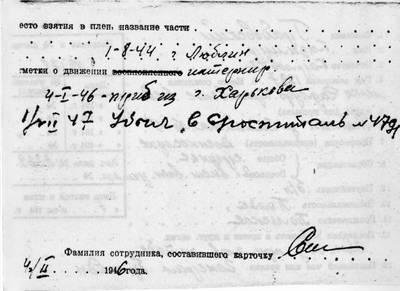 есто взятия в плен, название части
1-8-44 г Люблин
тметки о движении военнопленного интернир.
4-I-46 - приб из г. Харькова
1/VII 47 Убыл в Спогоспиталь №
Фамилия сотрудника, составившего карточку
4/II 1946 года.